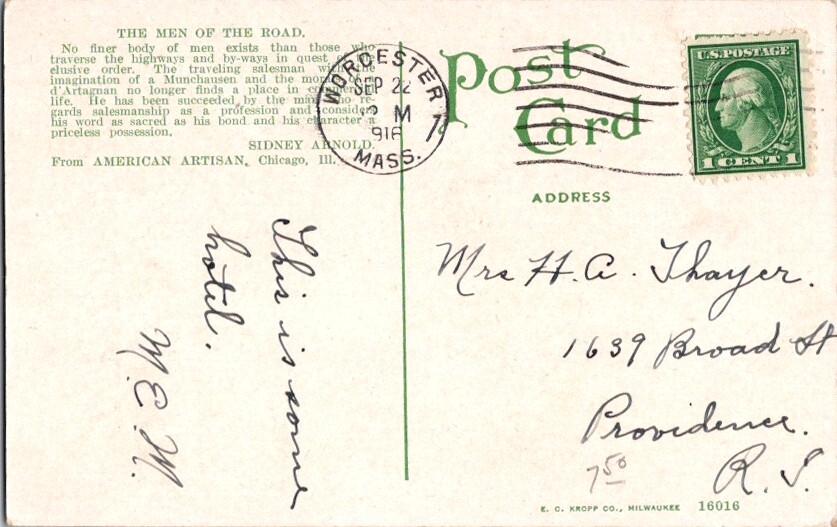 THE MEN OF THE ROAD.
No finer body of men exists than those who
traverse the highways and by-ways in quest of the
elusive order. The traveling salesman with the
imagination of a Munchausen and the morals of a
d'Artagnan no longer finds a place in commercial
life. He has been succeeded by the man who re-
gards salesmanship as a profession and considers
his word as sacred as his bond and his character a
priceless possession.
SIDNEY ARNOLD.
From AMERICAN ARTISAN, Chicago, Ill.
WORCESTER
SEP 22
M
1916
MASS.
Post
Card
U.S. POSTAGE
1 CENT 1
ADDRESS
This is some
hotel.
M. E. M.
Mrs H. A. Thayer.
1639 Broad St
Providence.
R. I.
7 50
E. C. KROPP CO., MILWAUKEE 16016